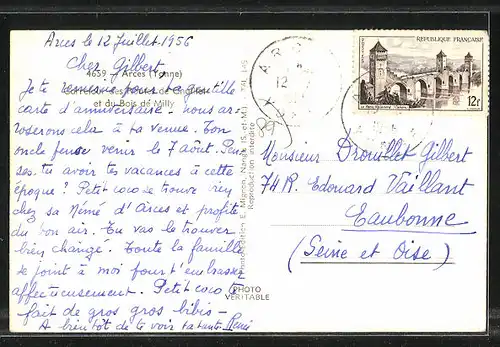 Arces le 12 Juillet 1956
Cher Gilbert,
4659 - Arces (Yonne)
Je te remercie pour ta gentille
et du Bois de Milly
carte d'anniversaire. nous ar-
roserons cela à ta venue. Ton
oncle pense venir le 7 août. Pen
ses. tu avoir tes vacances à cette
époque ? Petit coco se trouve bien
chez sa Mémé d'Arces et profite
du bon air. Tu vas le trouver
bien changé. Toute la famille
se joint à moi pour t'embrasser
affectueusement. Petit coco
fait de gros gros bibis -
A bientôt de te voir ta tante Remi
PHOTO
VERITABLE
Reproduction interdite
RÉPUBLIQUE FRANÇAISE
12F
89
Monsieur Drouillet Gilbert
74 R. Edouard Vaillant
Eaubonne
(Seine et Oise)